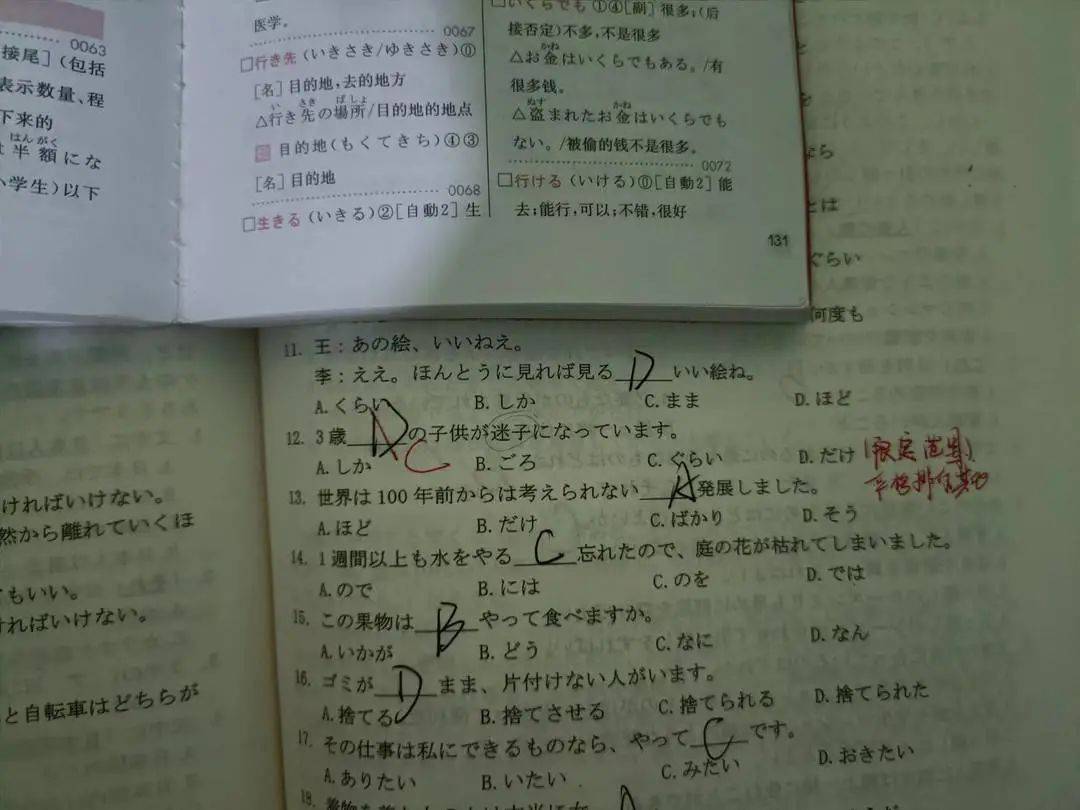 0063
接尾](包括
表示数量、程
下来的
はんがく
は半額にな
小学生)以下
医学。
0067
□行き先(いきさき/ゆきさき)⓪
[名]目的地,去的地方
い さき ばしょ
△行き先の場所/目的地的地点
目的地(もくてきち)④③
[名]目的地
0068
□生きる(いきる)②[自動2]生
□いくらでも ①④[副]很多;(后
接否定)不多,不是很多
かね
△お金はいくらでもある。/有
很多钱。
ぬす かね
△盗まれたお金はいくらでも
ない。/被偷的钱不是很多。
0072
□行ける(いける)⓪[自動2]能
去;能行,可以;不错,很好
131
なら
とは
ぐらい
何度も
ければいけない。
然から離れていくほ
もいい。
ければいけない。
と自転車はどちらが
11. 王:あの絵、いいねえ。
李:ええ。ほんとうに見れば見る D いい絵ね。
A.くらい B.しか C.まま D.ほど
12. 3歳 D C の子供が迷子になっています。
A.しか B.ごろ C.ぐらい D.だけ (限定范围)
13. 世界は100年前からは考えられない A 発展しました。
A.ほど B.だけ C.ばかり D.そう
14. 1週間以上も水をやる C 忘れたので、庭の花が枯れてしまいました。
A.ので B.には C.のを D.では
15. この果物は B やって食べますか。
A.いかが B.どう C.なに D.なん
16. ゴミが D まま、片付けない人がいます。
A.捨てる B.捨てさせる C.捨てられる D.捨てられた
17. その仕事は私にできるものなら、やって C です。
A.ありたい B.いたい C.みたい D.おきたい
18.